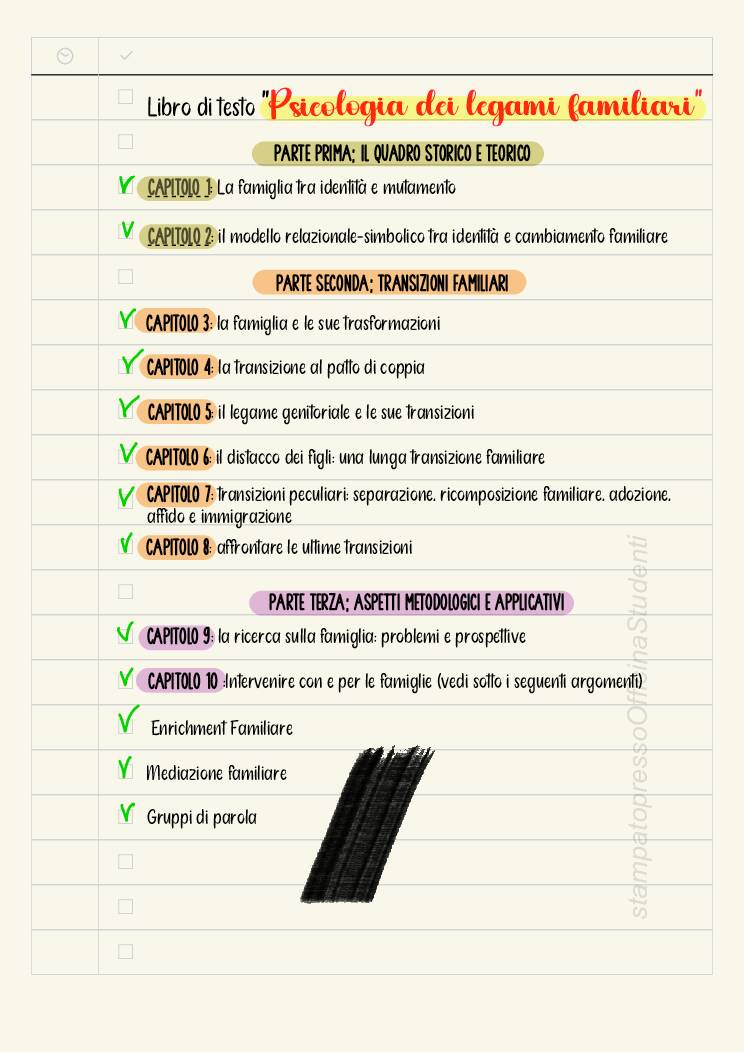 Libro di testo "Psicologia dei legami familiari"
PARTE PRIMA; IL QUADRO STORICO E TEORICO
CAPITOLO 1: La famiglia tra identità e mutamento
CAPITOLO 2: il modello relazionale-simbolico tra identità e cambiamento familiare
PARTE SECONDA; TRANSIZIONI FAMILIARI
CAPITOLO 3: la famiglia e le sue trasformazioni
CAPITOLO 4: la transizione al patto di coppia
CAPITOLO 5: il legame genitoriale e le sue transizioni
CAPITOLO 6: il distacco dei figli: una lunga transizione familiare
CAPITOLO 7: transizioni peculiari: separazione, ricomposizione familiare, adozione,
affido e immigrazione
CAPITOLO 8: affrontare le ultime transizioni
PARTE TERZA; ASPETTI METODOLOGICI E APPLICATIVI
CAPITOLO 9: la ricerca sulla famiglia: problemi e prospettive
CAPITOLO 10 :Intervenire con e per le famiglie (vedi sotto i seguenti argomenti)
Enrichment Familiare
Mediazione familiare
Gruppi di parola
stampatopressoOfficinaStudenti